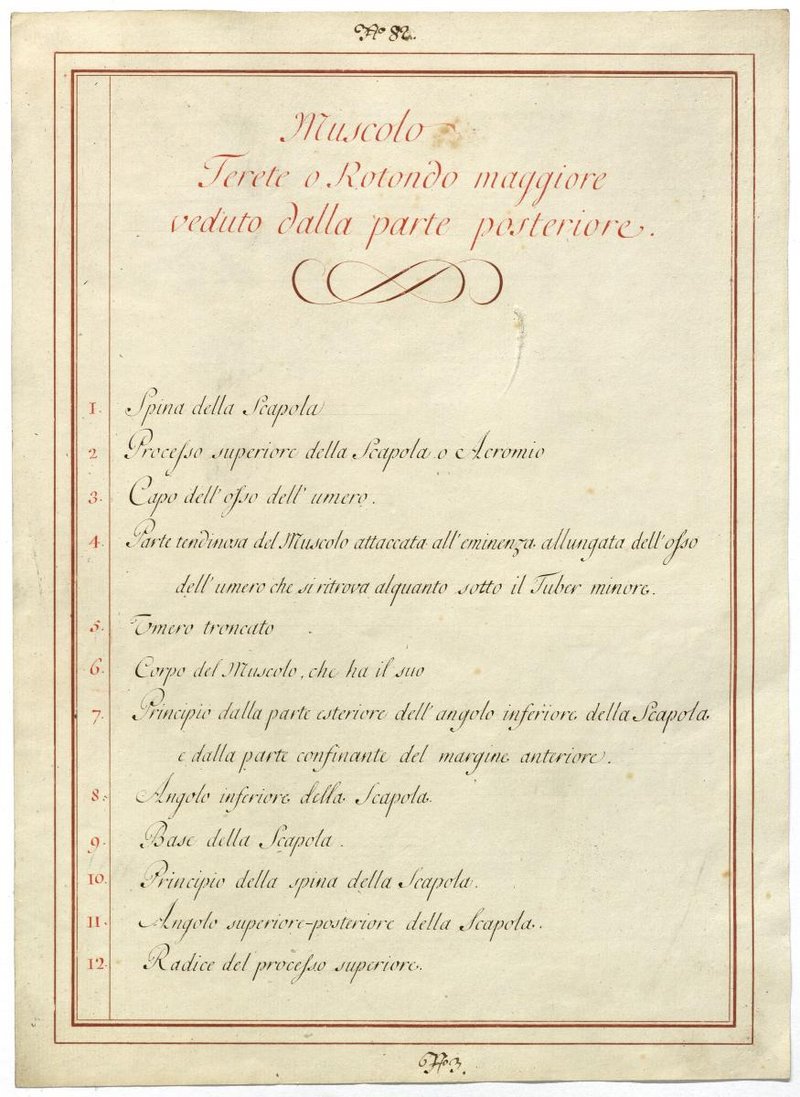 No 82.
Muscolo
Terete o Rotondo maggiore
veduto dalla parte posteriore.
1. Spina della Scapola
2 Processo superiore della Scapola o Acromio
3. Capo dell'osso dell'umero.
4. Parte tendinosa del Muscolo attaccata all'eminenza allungata dell'osso
dell'umero che si ritrova alquanto sotto il Tuber minore.
5. Umero troncato
6. Corpo del Muscolo, che ha il suo
7. Principio dalla parte esteriore dell'angolo inferiore della Scapola
e dalla parte confinante del margine anteriore.
8. Angolo inferiore della Scapola.
9. Base della Scapola.
10. Principio della spina della Scapola.
11. Angolo superiore-posteriore della Scapola.
12. Radice del processo superiore.
No 3.